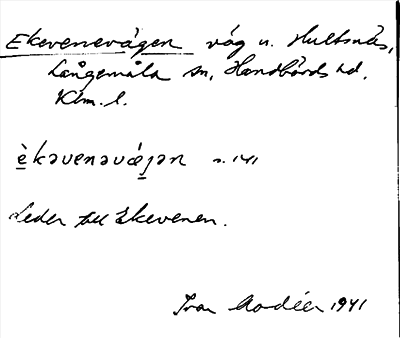 Ekevenevägen väg u. Hultsnäs,
Långemåla sn, Handbörds hd,
Klm. l.
èkəvenəvǽjən s. 141
Leder till Ekevenen.
Ivar Modéer 1941